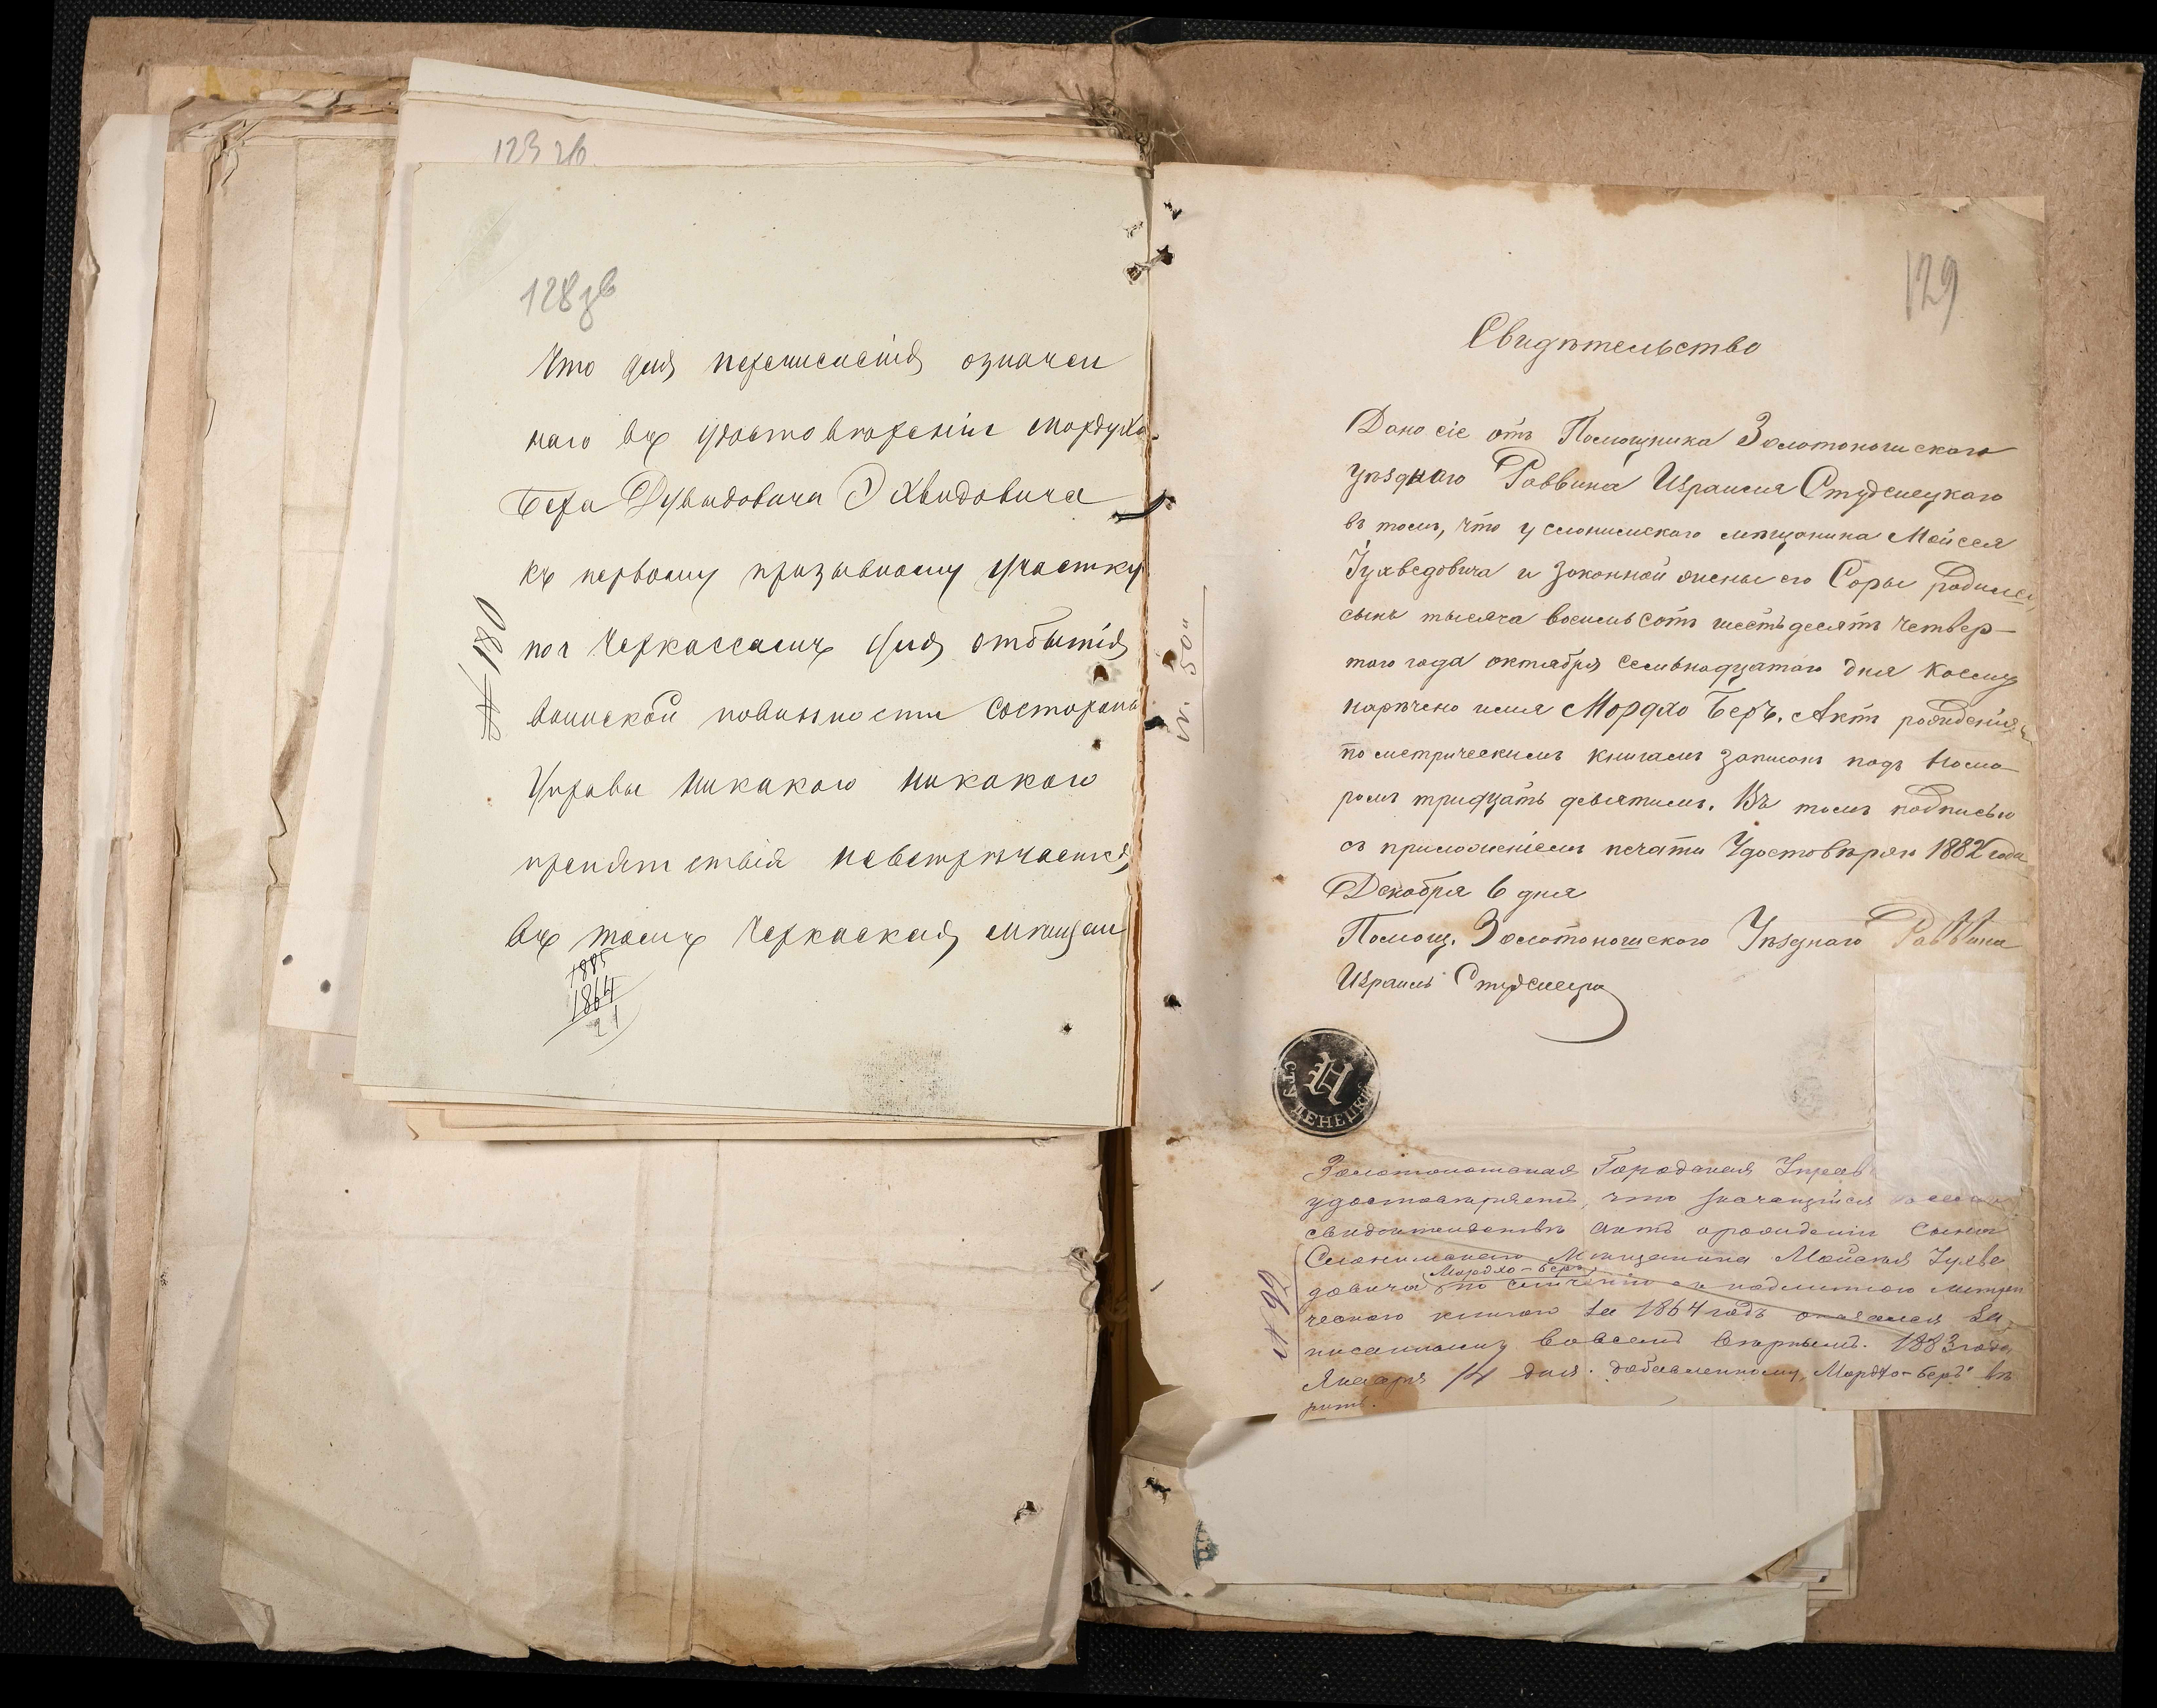 123 зв
128 зв
Что для перечисленія означен
наго въ удостовѣреніи Мордуха
Бера Дувидовича Юхвидовича
къ первому призывному участку
по г Черкассамъ для отбытія
воинской повинности состороны
Управы никакого никакого
препятствія невстрѣчается,
въ томъ Черкаская мѣщан
1885
1864
21
№ 180
129
Свидѣтельство
Дано сіе отъ Помощника Золотоношскаго
Уѣзднаго Раввина Израиля Студенецкаго
въ томъ, что у слонимскаго мѣщанина Мойсея
Іухведовича и законной жены его Соры родился
сынъ тысяча восемьсотъ шестьдесятъ четвер-
того года октября семьнадцатаго дня коему
наречено имя Мордхо Беръ. Актъ рожденія
по метрическимъ книгамъ записанъ подъ номе
ромъ тридцать девятымъ. Въ томъ подписью
съ приложеніемъ печати Удостовѣряю 1882 года
Декабря 6 дня
Помощ. Золотоношскаго Уѣзднаго Раввина
Израиль Студенецкій
СТУДЕНЕЦКІЙ
Золотоношская Городская Управ
удостовѣряетъ, что значащійся
свидѣтельствѣ актъ орожденіи сына
Слонимскаго Мѣщанина Мойсея Іухве
Мордхо-Беръ
довича по сличенію съ подлинною метри
ческою книгою за 1864 годъ оказался за
писаннымъ вовсемъ вѣрнымъ. 1883 года
Января 14 дня. добавленному Мордхо-Беръ вѣ
рить.
№ 50
№ 92